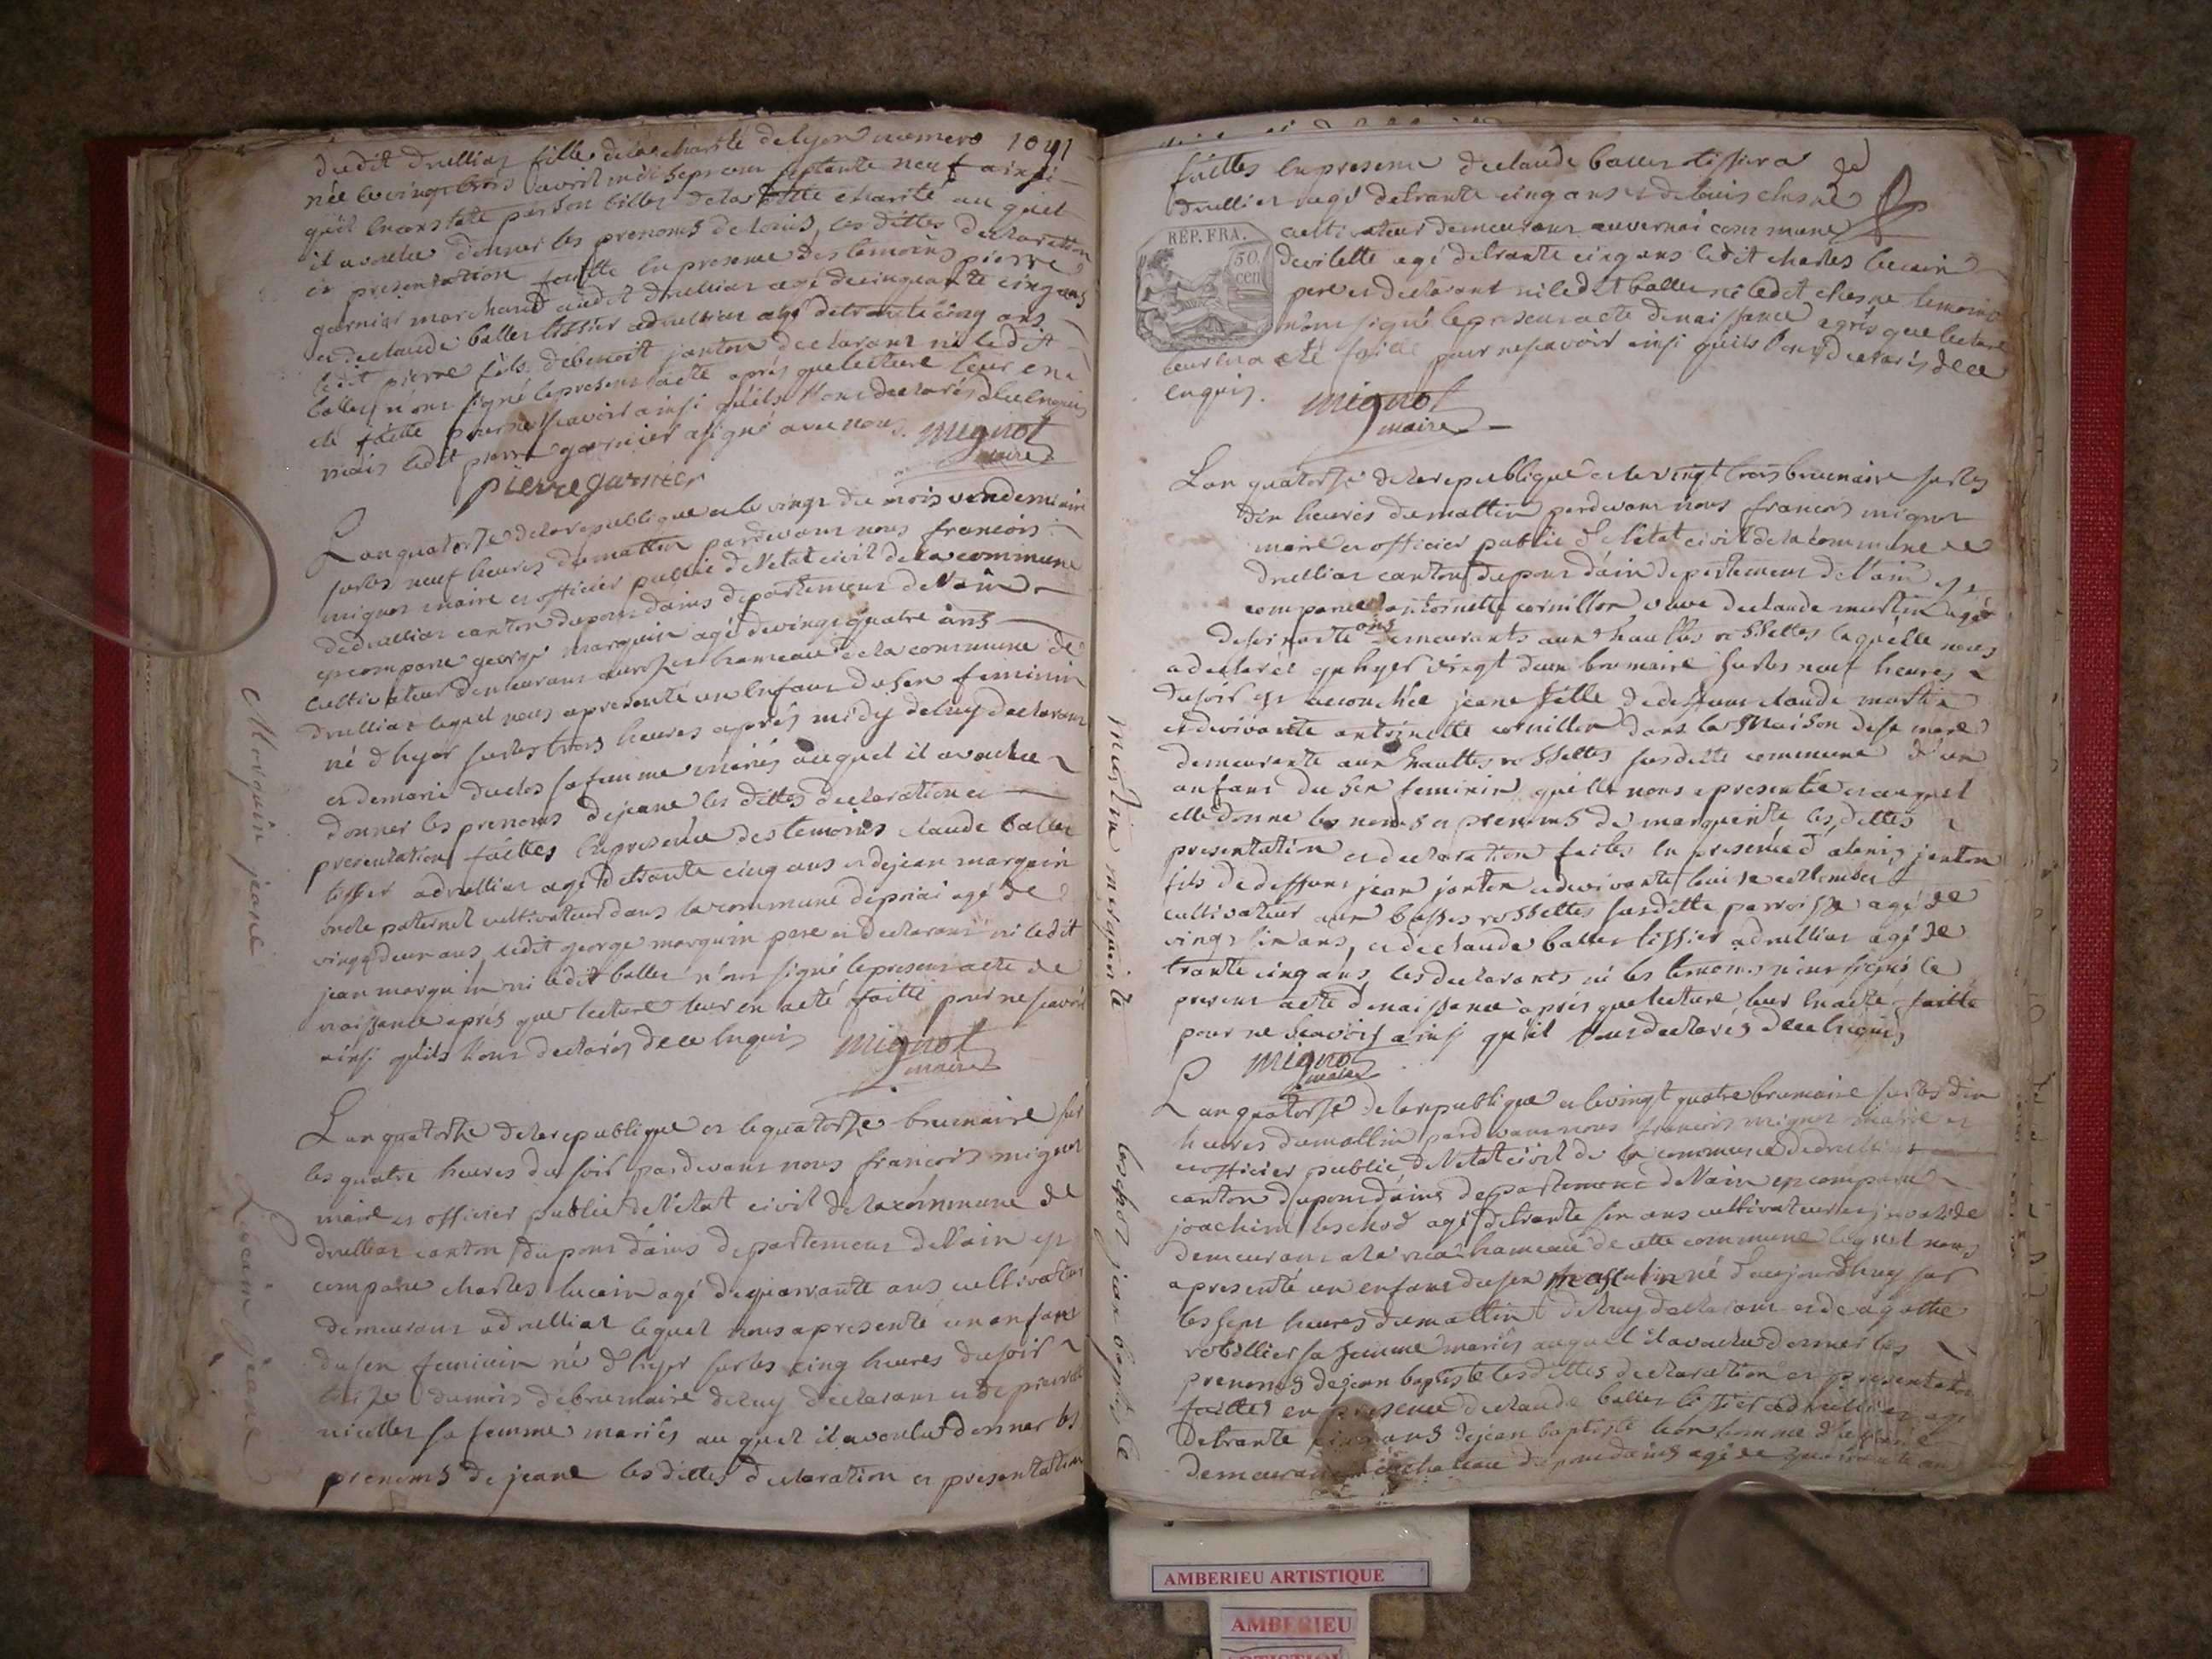 dudit druillias fille de la charité de lyon numero 1041
née le vingt trois avril mil sept cent septante neuf ainsi
qu'il en constate par son billet de la ditte charité au quel
il a voulu donner les prenoms de louis, les dittes declaration
et presentation faitte en presence des temoins pierre
garnier marchand audit druillias agé de cinquante cinq ans
et de claude ballet tissier a druillias agé de trante cinq ans
ledit pierre fils de benoit janton declarant ni ledit
ballet n'ont signé le present acte aprés que lecture leur en a
eté faitte pour ne scavoir ainsi qu'ils l'ont declarés de ce enquis
mais ledit pierre garnier a signé avec nous. mignot
maire
pierre garnier
L'an quatorze de la republique et le vingt du mois vendemiaire
sur les neuf heures du mattin pardevant nous francois
mignot maire et officier public de l'etat civil de la commune
de druillias canton du pont dains departement de l'ain
est comparu george marguin agé de vingt quatre ans
cultivateur demeurant au hameau de la commune de
druillias lequel nous a presenté un enfant du sex feminin
né d'hyer sur les trois heures aprés midy de luy declarant
et de marie duclos sa femme mariés auquel il a voulu
donner les prenoms de jeane les dittes declaration et
presentation faittes en presence des temoins claude ballet
tissier a druillias agé de trante cinq ans et de jean marguin
oncle paternel cultivateur dans la commune de priai agé de
vingt deux ans, ledit george marguin pere et declarant ni ledit
jean marguin ni ledit ballet n'ont signé le present acte de
naissance aprés que lecture leur en a eté faitte pour ne scavoir
ainsi qu'ils l'ont declarés de ce enquis mignot
maire
Marguin jeane
L'an quatorze de la republique et le quatorze brumaire sur
les quatre heures du soir pardevant nous francois mignot
maire et officier public de l'etat civil de la commune de
druillias canton du pont dains departement de l'ain est
comparu charles lucain agé de quarante ans cultivateur
demeurant a druillias lequel nous a presenté un anfant
du sex feminin né d'hyer sur les cinq heures du soir
treize du mois de brumaire de luy declarant et de
sa femme mariés au quel il a voulu donner les
prenoms de jeane les dittes declaration et presentation
Lucain jeane
faittes en presence de claude ballet tissier a
druillias agé de trante cinq ans et de louis chesne
cultivateur demeurant au vernai commune
de vilette agé de trante cinq ans ledit charles lucain
pere et declarant ni ledit ballet ni ledit chesne temoins
n'ont signé le present acte de naissance aprés que lecture
leur en a eté faitte pour ne scavoir ainsi qu'ils l'ont declarés de ce
enquis. mignot
maire
REP. FRA.
50
cen
L'an quatorze de la republique et le vingt trois brumaire sur les
dix heures du mattin pardevant nous francois mignot
maire et officier public de l'etat civil de la commune de
druillias canton du pont d'ain departement de l'ain est
comparue antoinette cornillon veuve de claude martin agé
de soixante ans demeurante aux hauttes rossettes laquelle nous
a declaréé qu'hyer vingt deux brumaire sur les neuf heures
du soir est accouchée jeane fille de deffunt claude martin
et de vivante antoinette cornillon dans la maison de sa mere
demeurante aux hauttes rossettes susditte commune d'un
anfant du sex feminin quelle nous a presentée et auquel
elle donne les noms et prenoms de marguerite les dittes
presentation et declaration faites en presence d'alexis janton
fils de deffunt jean janton et de vivante
cultivateur aux basses rossettes susditte parroisse agé de
vingt six ans, et de claude ballet tissier a druillias agé de
trante cinq ans, les declarants ni les temoins n'ont signés le
present acte de naissance aprés que lecture leur en a eté faitte
pour ne scavoir ainsi qu'il l'ont declarés de ce enquis
mignot
maire
martin marguerite
L'an quatorze de la republique et le vingt quatre brumaire sur les dix
heures du mattin pardevant nous francois mignot maire et
officier public de l'etat civil de la commune de druillias
canton du pont dains departement de l'ain est comparu
joachim bochod agé de trante six ans cultivateur et invalide
demeurant a la rua hameau de cette commune lequel nous
a presenté un enfant du sex masculin né d'aujourd'huy sur
les sept heures du mattin de luy declarant et de agathe
robillier sa femme mariés auquel il a voulu donner les
prenoms de jean baptiste les dittes declaration et presentation
faittes en presence de claude ballet tissier a druillias agé
de trante cinq ans de jean baptiste
demeurant au chateau du pont dains agé de quarante ans
bochod jean baptiste
AMBERIEU ARTISTIQUE
AMBERIEU
ARTISTIQUE